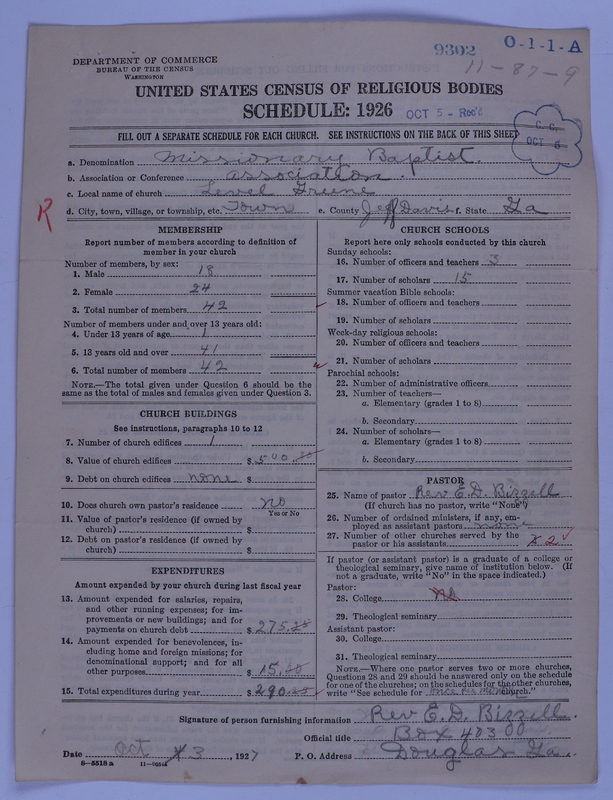 9302 O-1-1-A
11-87-9
DEPARTMENT OF COMMERCE
BUREAU OF THE CENSUS
WASHINGTON
UNITED STATES CENSUS OF RELIGIOUS BODIES
SCHEDULE: 1926 OCT 5 - Rec'd
FILL OUT A SEPARATE SCHEDULE FOR EACH CHURCH. SEE INSTRUCTIONS ON THE BACK OF THIS SHEET
C. G.
OCT 6
a. Denomination Missionary Baptist.
b. Association or Conference association.
c. Local name of church Level Greene
R
d. City, town, village, or township, etc. Town e. County Jeff Davis f. State Ga
MEMBERSHIP
Report number of members according to definition of
member in your church
Number of members, by sex:
1. Male 18
2. Female 24
3. Total number of members 42
Number of members under and over 13 years old:
4. Under 13 years of age 1
5. 13 years old and over 41
6. Total number of members 42
NOTE.—The total given under Question 6 should be the
same as the total of males and females given under Question 3.
CHURCH BUILDINGS
See instructions, paragraphs 10 to 12
7. Number of church edifices 1
8. Value of church edifices $ 500.00
9. Debt on church edifices $ none
10. Does church own pastor's residence no
Yes or No
11. Value of pastor's residence (if owned by
church) $
12. Debt on pastor's residence (if owned by
church) $
EXPENDITURES
Amount expended by your church during last fiscal year
13. Amount expended for salaries, repairs,
and other running expenses; for im-
provements or new buildings; and for
payments on church debt $ 275.
14. Amount expended for benevolences, in-
cluding home and foreign missions; for
denominational support; and for all
other purposes $ 15.
15. Total expenditures during year $ 290.
CHURCH SCHOOLS
Report here only schools conducted by this church
Sunday schools:
16. Number of officers and teachers 3
17. Number of scholars 15
Summer vacation Bible schools:
18. Number of officers and teachers
19. Number of scholars
Week-day religious schools:
20. Number of officers and teachers
21. Number of scholars
Parochial schools:
22. Number of administrative officers
23. Number of teachers—
a. Elementary (grades 1 to 8)
b. Secondary
24. Number of scholars—
a. Elementary (grades 1 to 8)
b. Secondary
PASTOR
25. Name of pastor Rev E.D. Bizzell
(If church has no pastor, write "None")
26. Number of ordained ministers, if any, em-
ployed as assistant pastors none
27. Number of other churches served by the
pastor or his assistants 2
If pastor (or assistant pastor) is a graduate of a college or
theological seminary, give name of institution below. (If
not a graduate, write "No" in the space indicated.)
Pastor:
28. College No
29. Theological seminary
Assistant pastor:
30. College
31. Theological seminary
NOTE.—Where one pastor serves two or more churches,
Questions 28 and 29 should be answered only on the schedule
for one of the churches; on the schedules for the other churches,
write "See schedule for church."
Signature of person furnishing information Rev E.D. Bizzell.
Official title Box 403
Date Oct 3, 1927 P. O. Address Douglas Ga.
8-5518 a